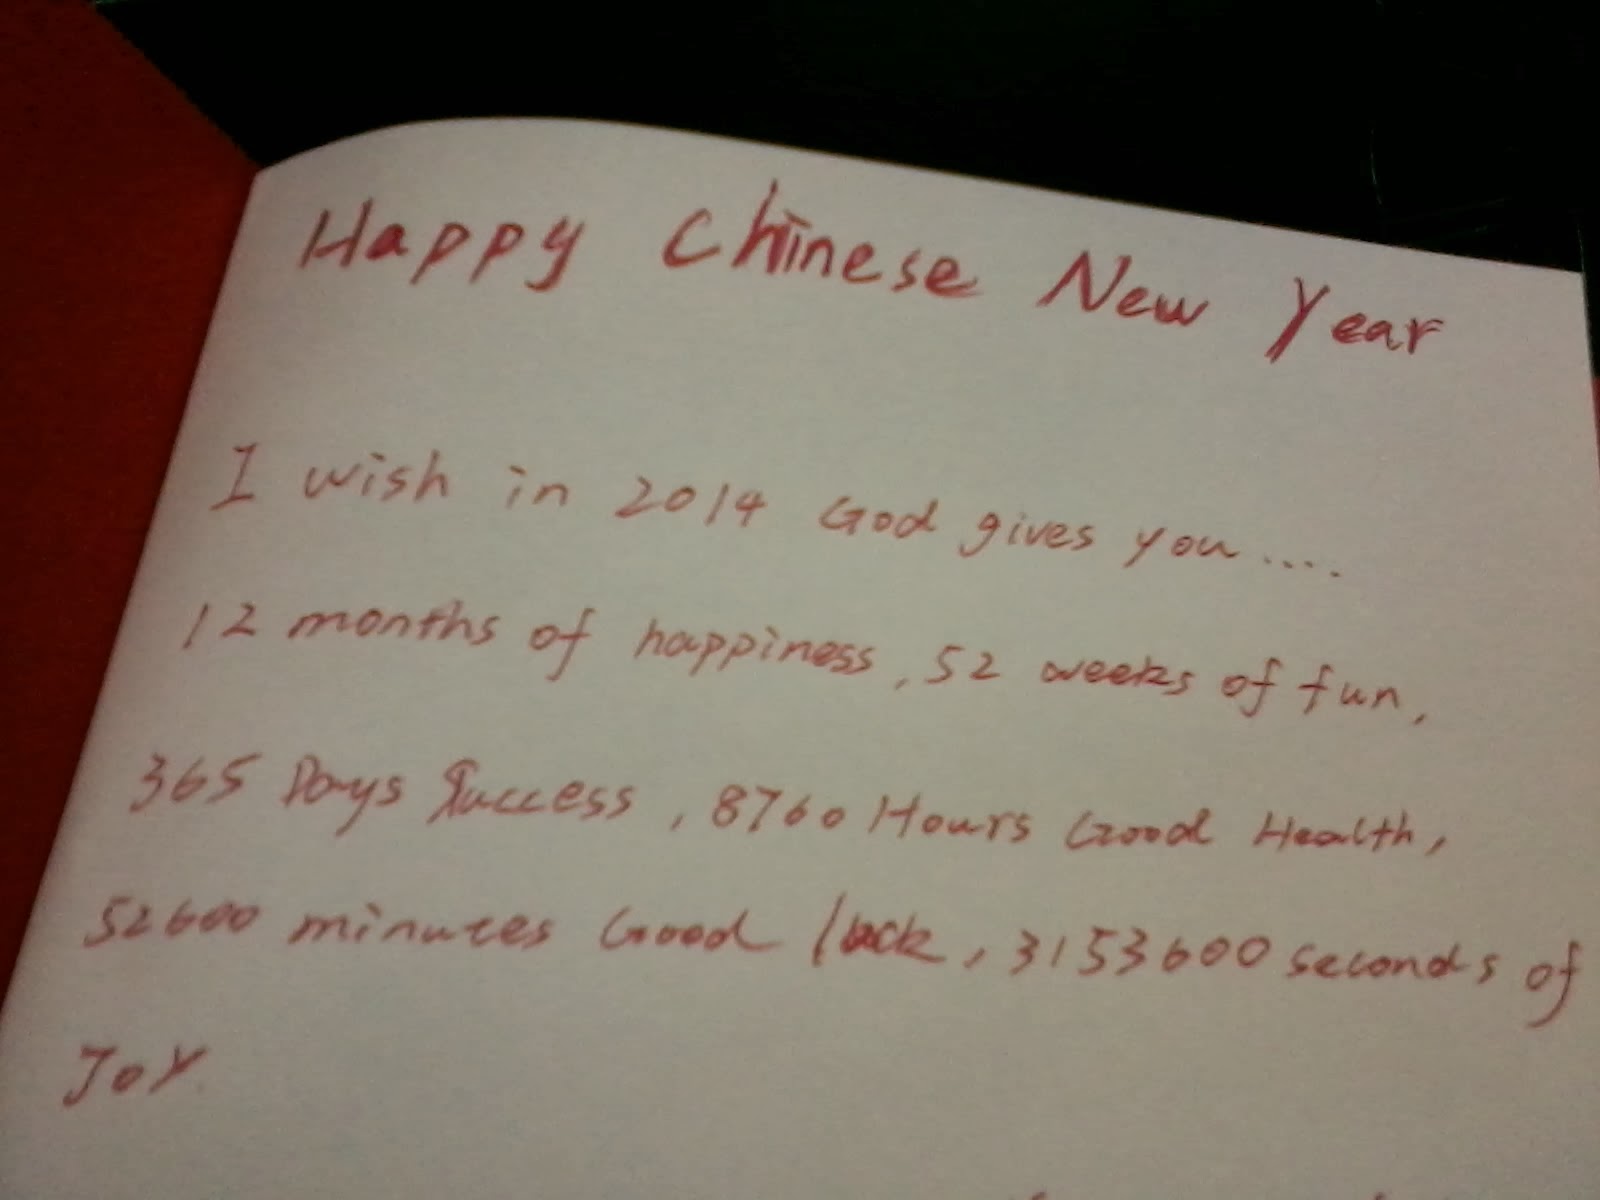 Happy Chinese New Year
I wish in 2014 God gives you....
12 months of happiness, 52 weeks of fun,
365 Days Success, 8760 Hours Good Health,
52600 minutes Good luck, 3153600 seconds of
Joy